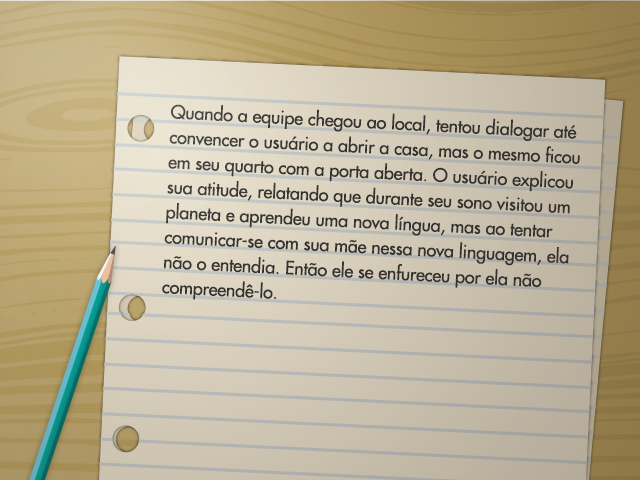 Quando a equipe chegou ao local, tentou dialogar até
convencer o usuário a abrir a casa, mas o mesmo ficou
em seu quarto com a porta aberta. O usuário explicou
sua atitude, relatando que durante seu sono visitou um
planeta e aprendeu uma nova língua, mas ao tentar
comunicar-se com sua mãe nessa nova linguagem, ela
não o entendia. Então ele se enfureceu por ela não
compreendê-lo.